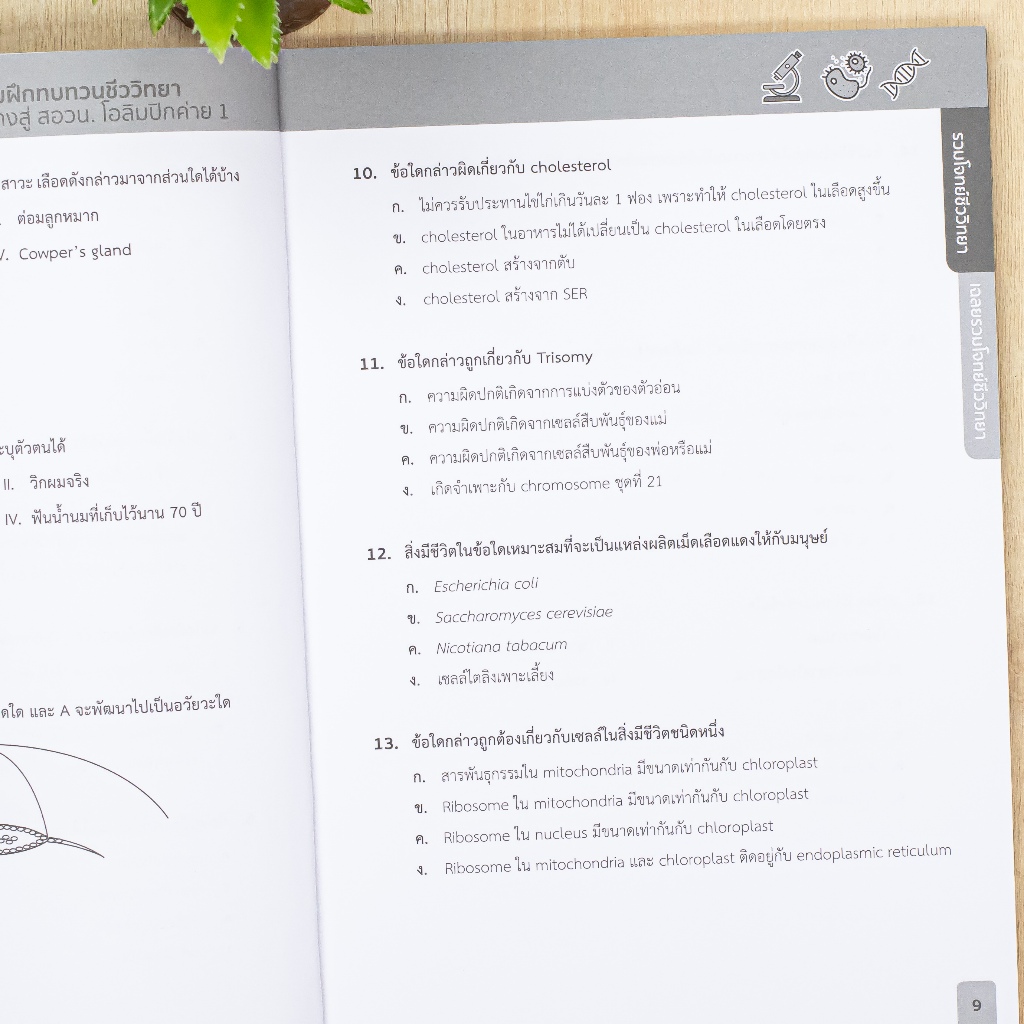 ฝึกทบทวนชีววิทยา
สู่ สอวน. โอลิมปิกค่าย 1
สาวะ เลือดดังกล่าวมาจากส่วนใดได้บ้าง
ต่อมลูกหมาก
Cowper's gland
ตัวตนได้
II. วิกผมจริง
IV. ฟันน้ำนมที่เก็บไว้นาน 70 ปี
และ A จะพัฒนาไปเป็นอวัยวะใด
10. ข้อใดกล่าวผิดเกี่ยวกับ cholesterol
ก. ไม่ควรรับประทานไข่ไก่เกินวันละ 1 ฟอง เพราะทำให้ cholesterol ในเลือดสูงขึ้น
ข. cholesterol ในอาหารไม่ได้เปลี่ยนเป็น cholesterol ในเลือดโดยตรง
ค. cholesterol สร้างจากตับ
ง. cholesterol สร้างจาก SER
11. ข้อใดกล่าวถูกเกี่ยวกับ Trisomy
ก. ความผิดปกติเกิดจากการแบ่งตัวของตัวอ่อน
ข. ความผิดปกติเกิดจากเซลล์สืบพันธุ์ของแม่
ค. ความผิดปกติเกิดจากเซลล์สืบพันธุ์ของพ่อหรือแม่
ง. เกิดจำเพาะกับ chromosome ชุดที่ 21
12. สิ่งมีชีวิตในข้อใดเหมาะสมที่จะเป็นแหล่งผลิตเม็ดเลือดแดงให้กับมนุษย์
ก. Escherichia coli
ข. Saccharomyces cerevisiae
ค. Nicotiana tabacum
ง. เซลล์ไตลิงเพาะเลี้ยง
13. ข้อใดกล่าวถูกต้องเกี่ยวกับเซลล์ในสิ่งมีชีวิตชนิดหนึ่ง
ก. สารพันธุกรรมใน mitochondria มีขนาดเท่ากันกับ chloroplast
ข. Ribosome ใน mitochondria มีขนาดเท่ากันกับ chloroplast
ค. Ribosome ใน nucleus มีขนาดเท่ากันกับ chloroplast
ง. Ribosome ใน mitochondria และ chloroplast ติดอยู่กับ endoplasmic reticulum
รวมโจทย์ชีววิทยา
เฉลยรวมโจทย์ชีววิทยา
9